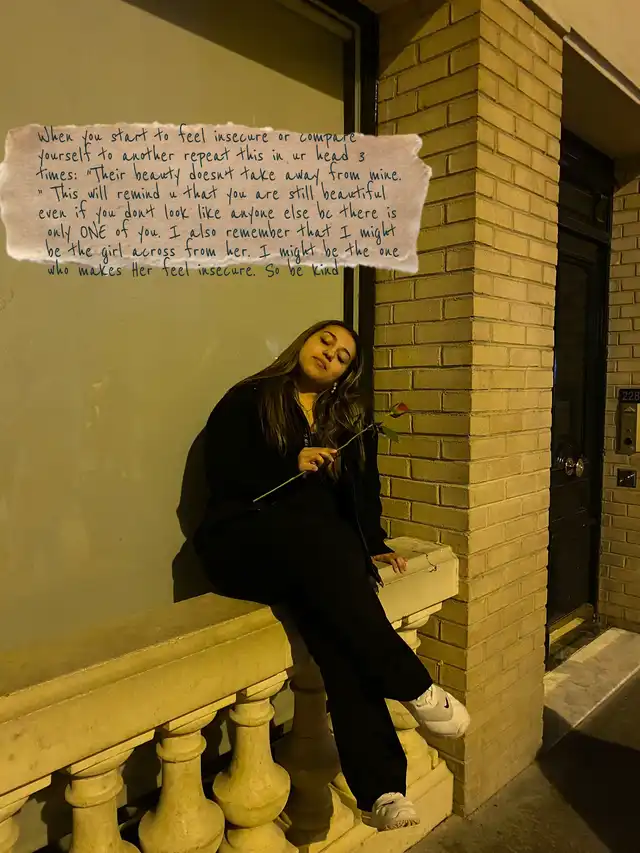 When you start to feel insecure or compare
yourself to another repeat this in ur head 3
times: "Their beauty doesnt take away from mine.
" This will remind u that you are still beautiful
even if you dont look like anyone else bc there is
only ONE of you. I also remember that I might
be the girl across from her. I might be the one
who makes Her feel insecure. So be kind
228